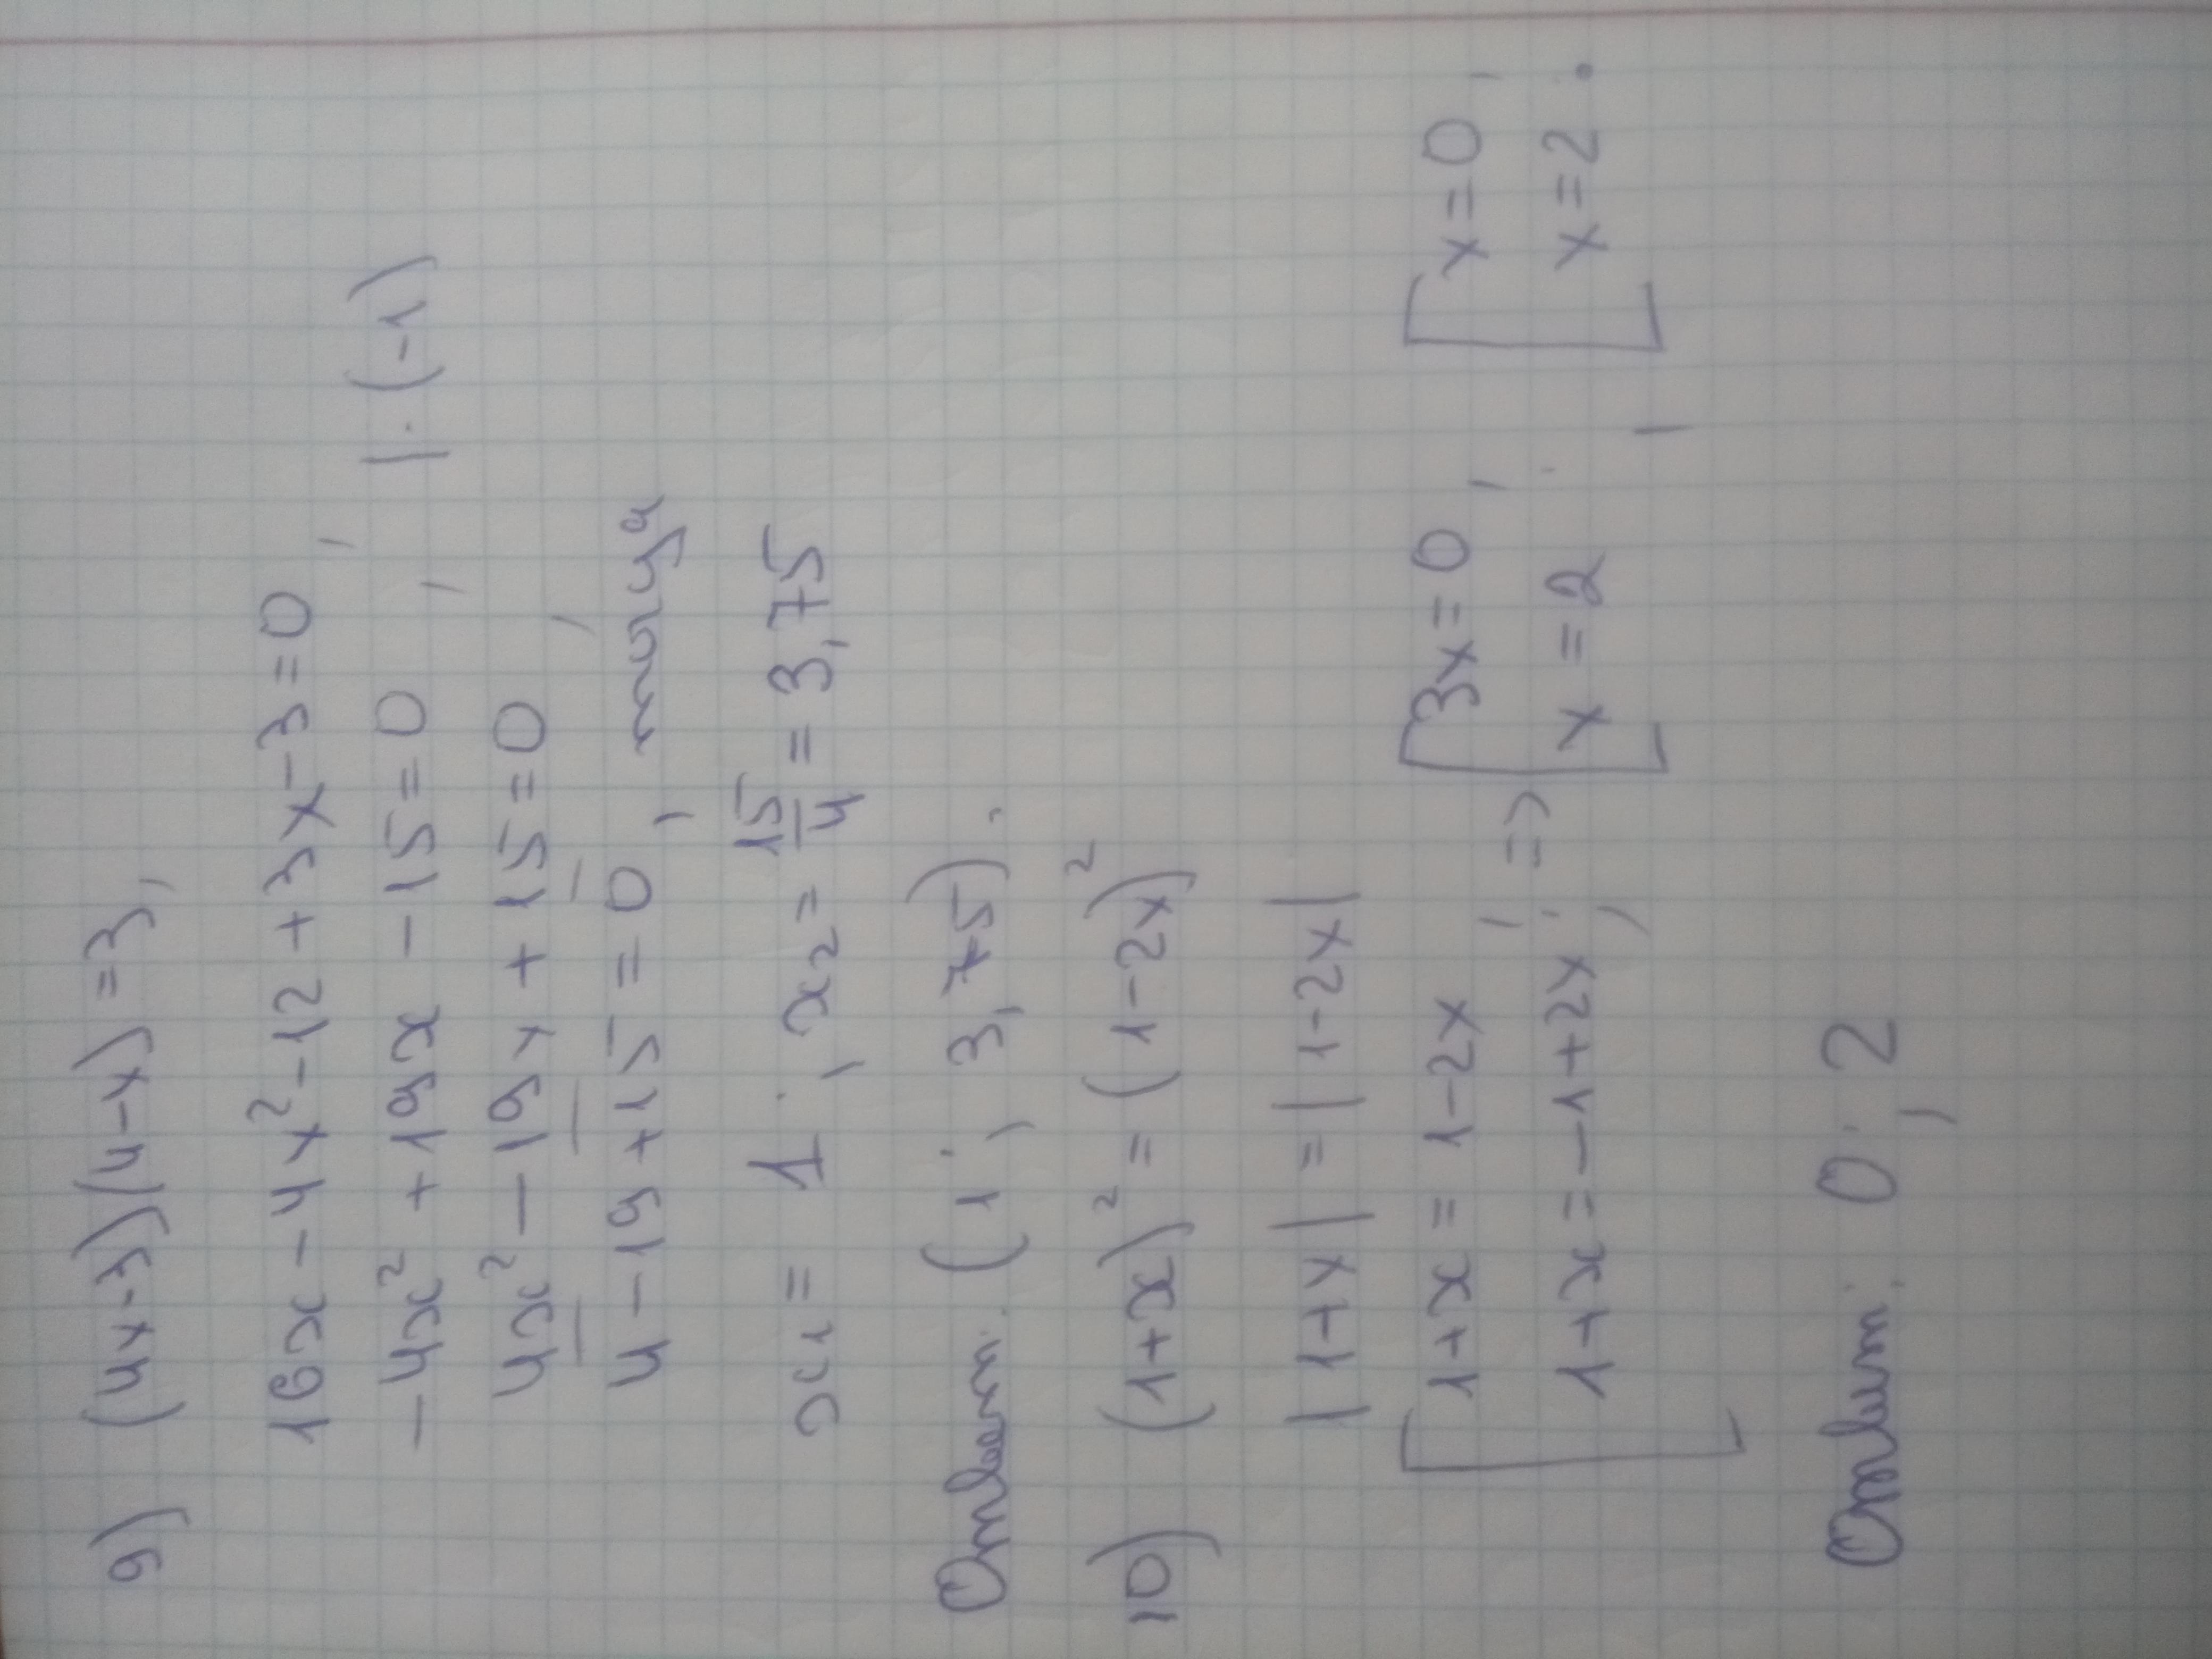 9) (4x-3)(4-x) = 3,
16x - 4x² - 12 + 3x - 3 = 0,
-4x² + 19x - 15 = 0, |·(-1)
4x² - 19x + 15 = 0,
4 - 19 + 15 = 0, тогда
x₁ = 1; x₂ = 15/4 = 3,75
Ответ. (1; 3,75).
10) (1+x)² = (1-2x)²
|1+x| = |1-2x|
[1+x = 1-2x, [3x=0, [x=0,
1+x = -1+2x; => x=2; x=2.
Ответ: 0; 2